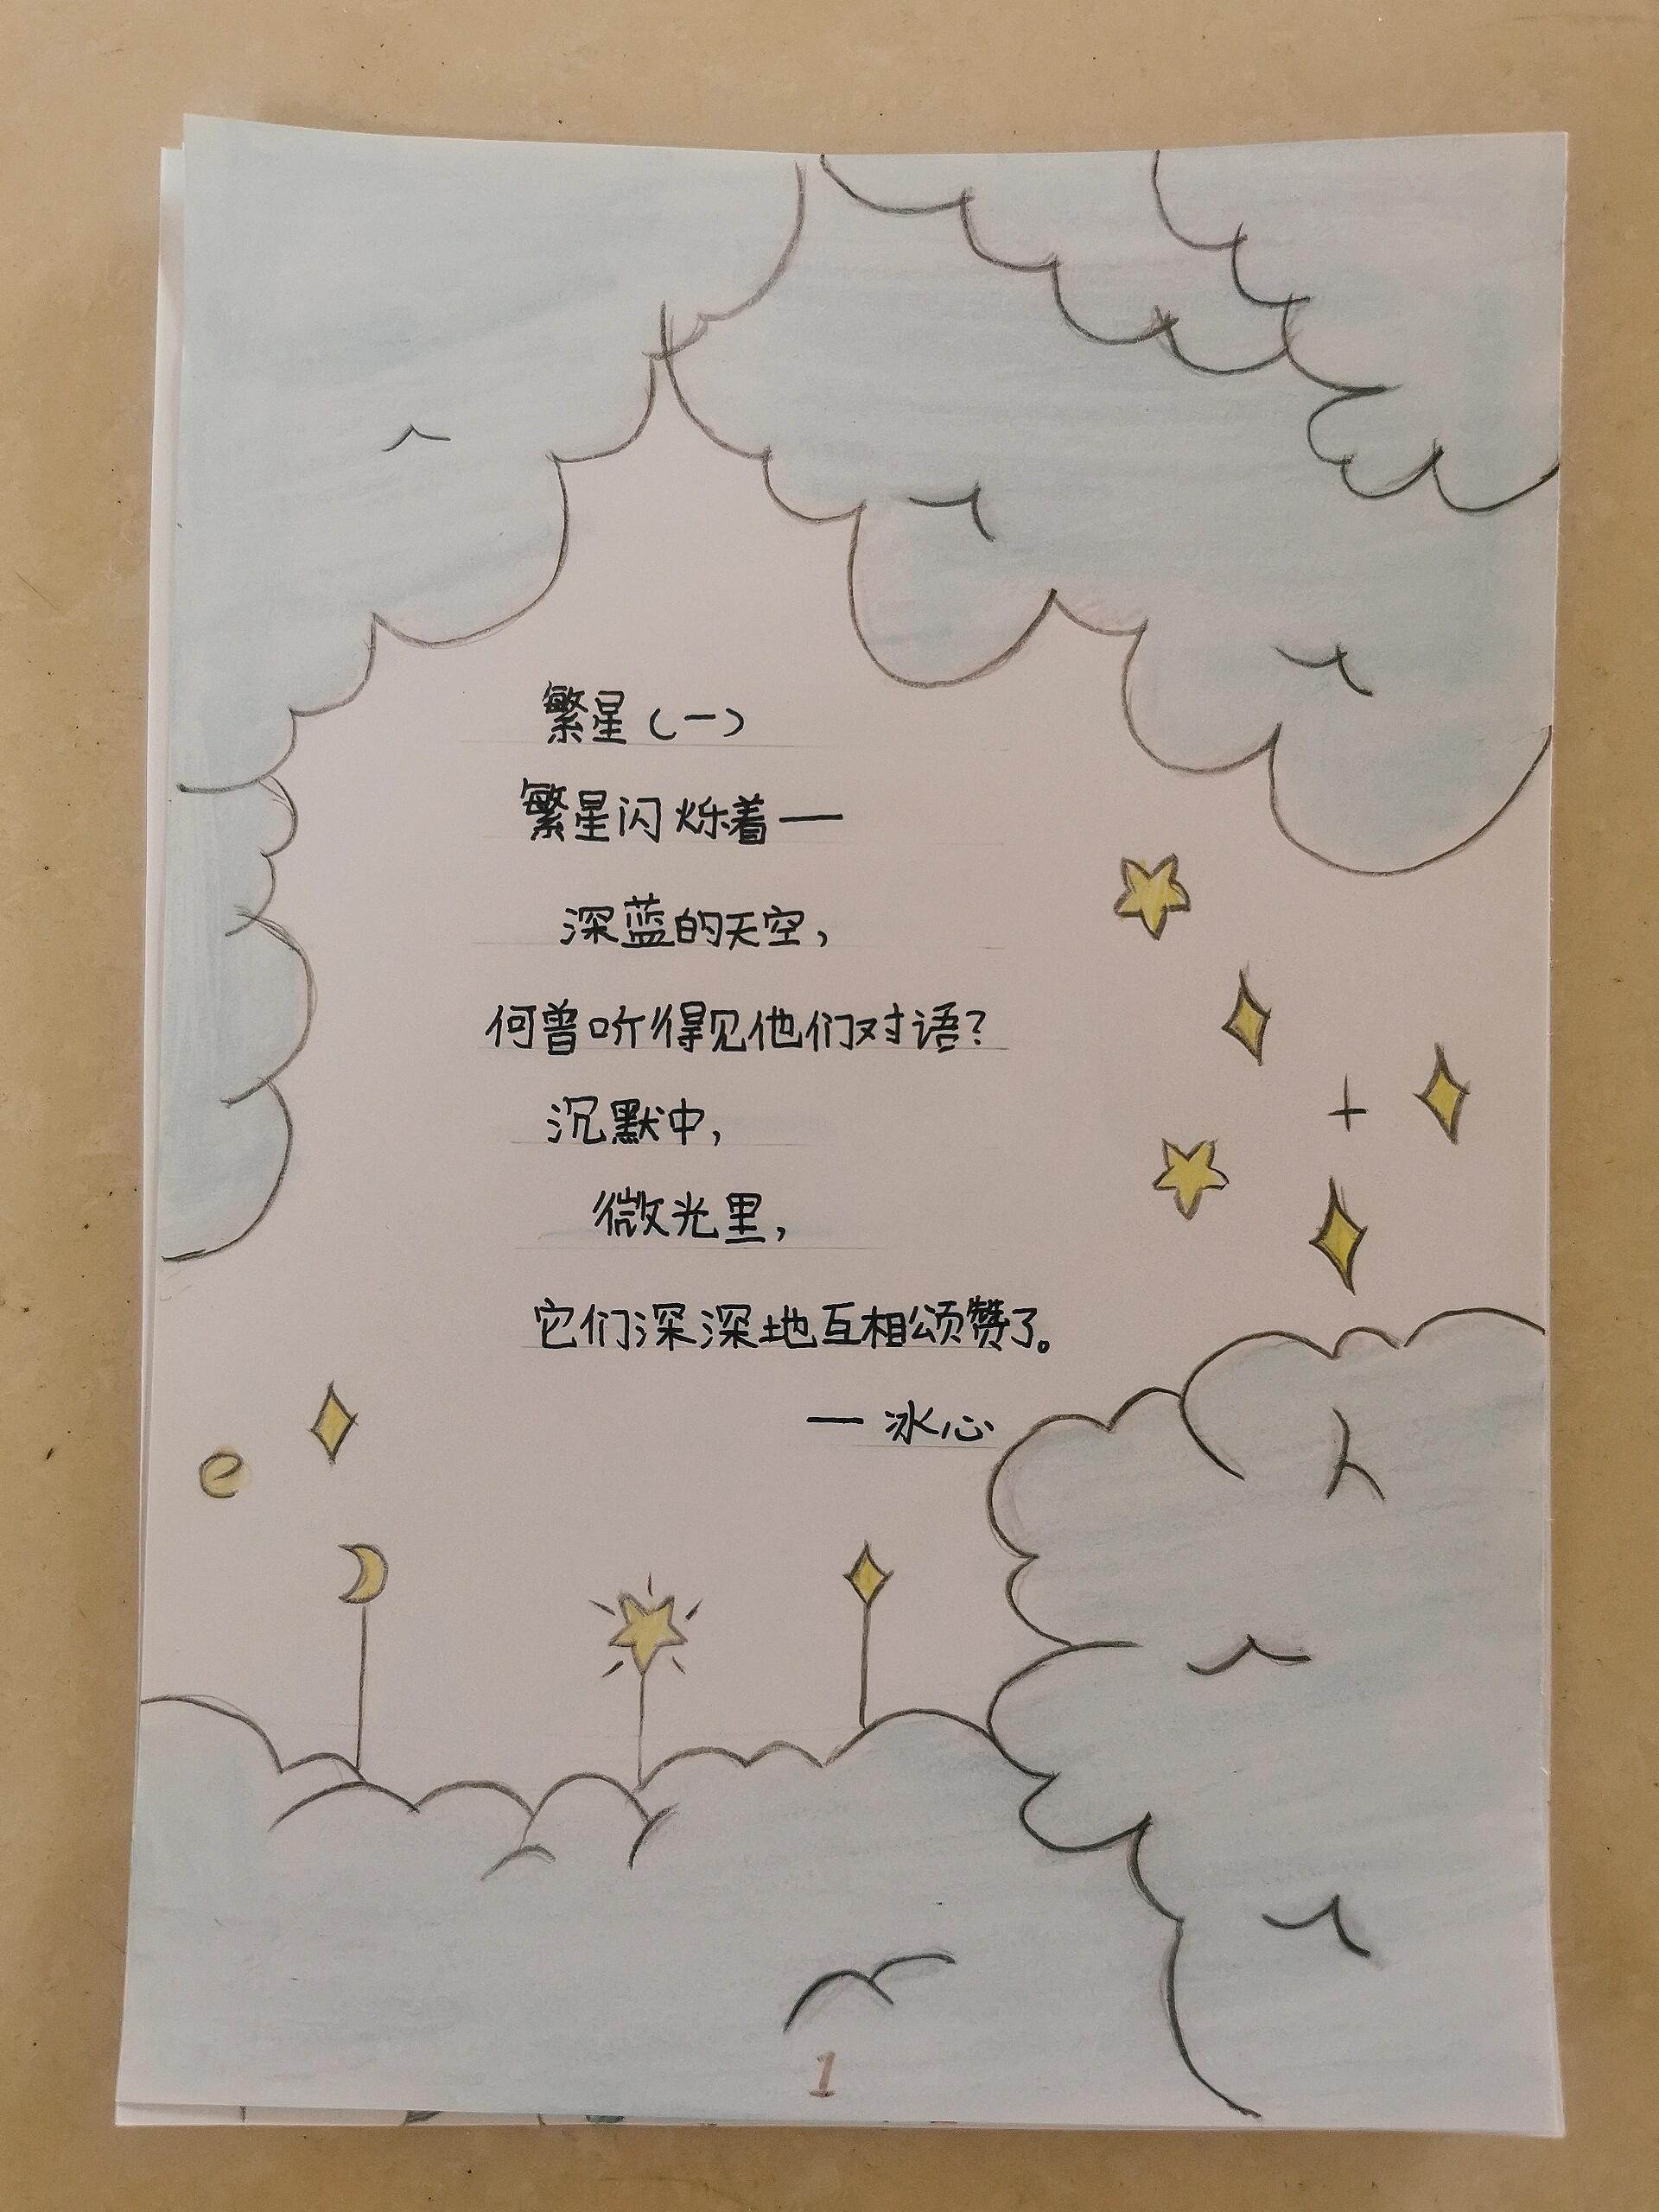 繁星（一）
繁星闪烁着——
深蓝的天空，
何曾听得见他们对语？
沉默中，
微光里，
它们深深地互相颂赞了。
—冰心
1